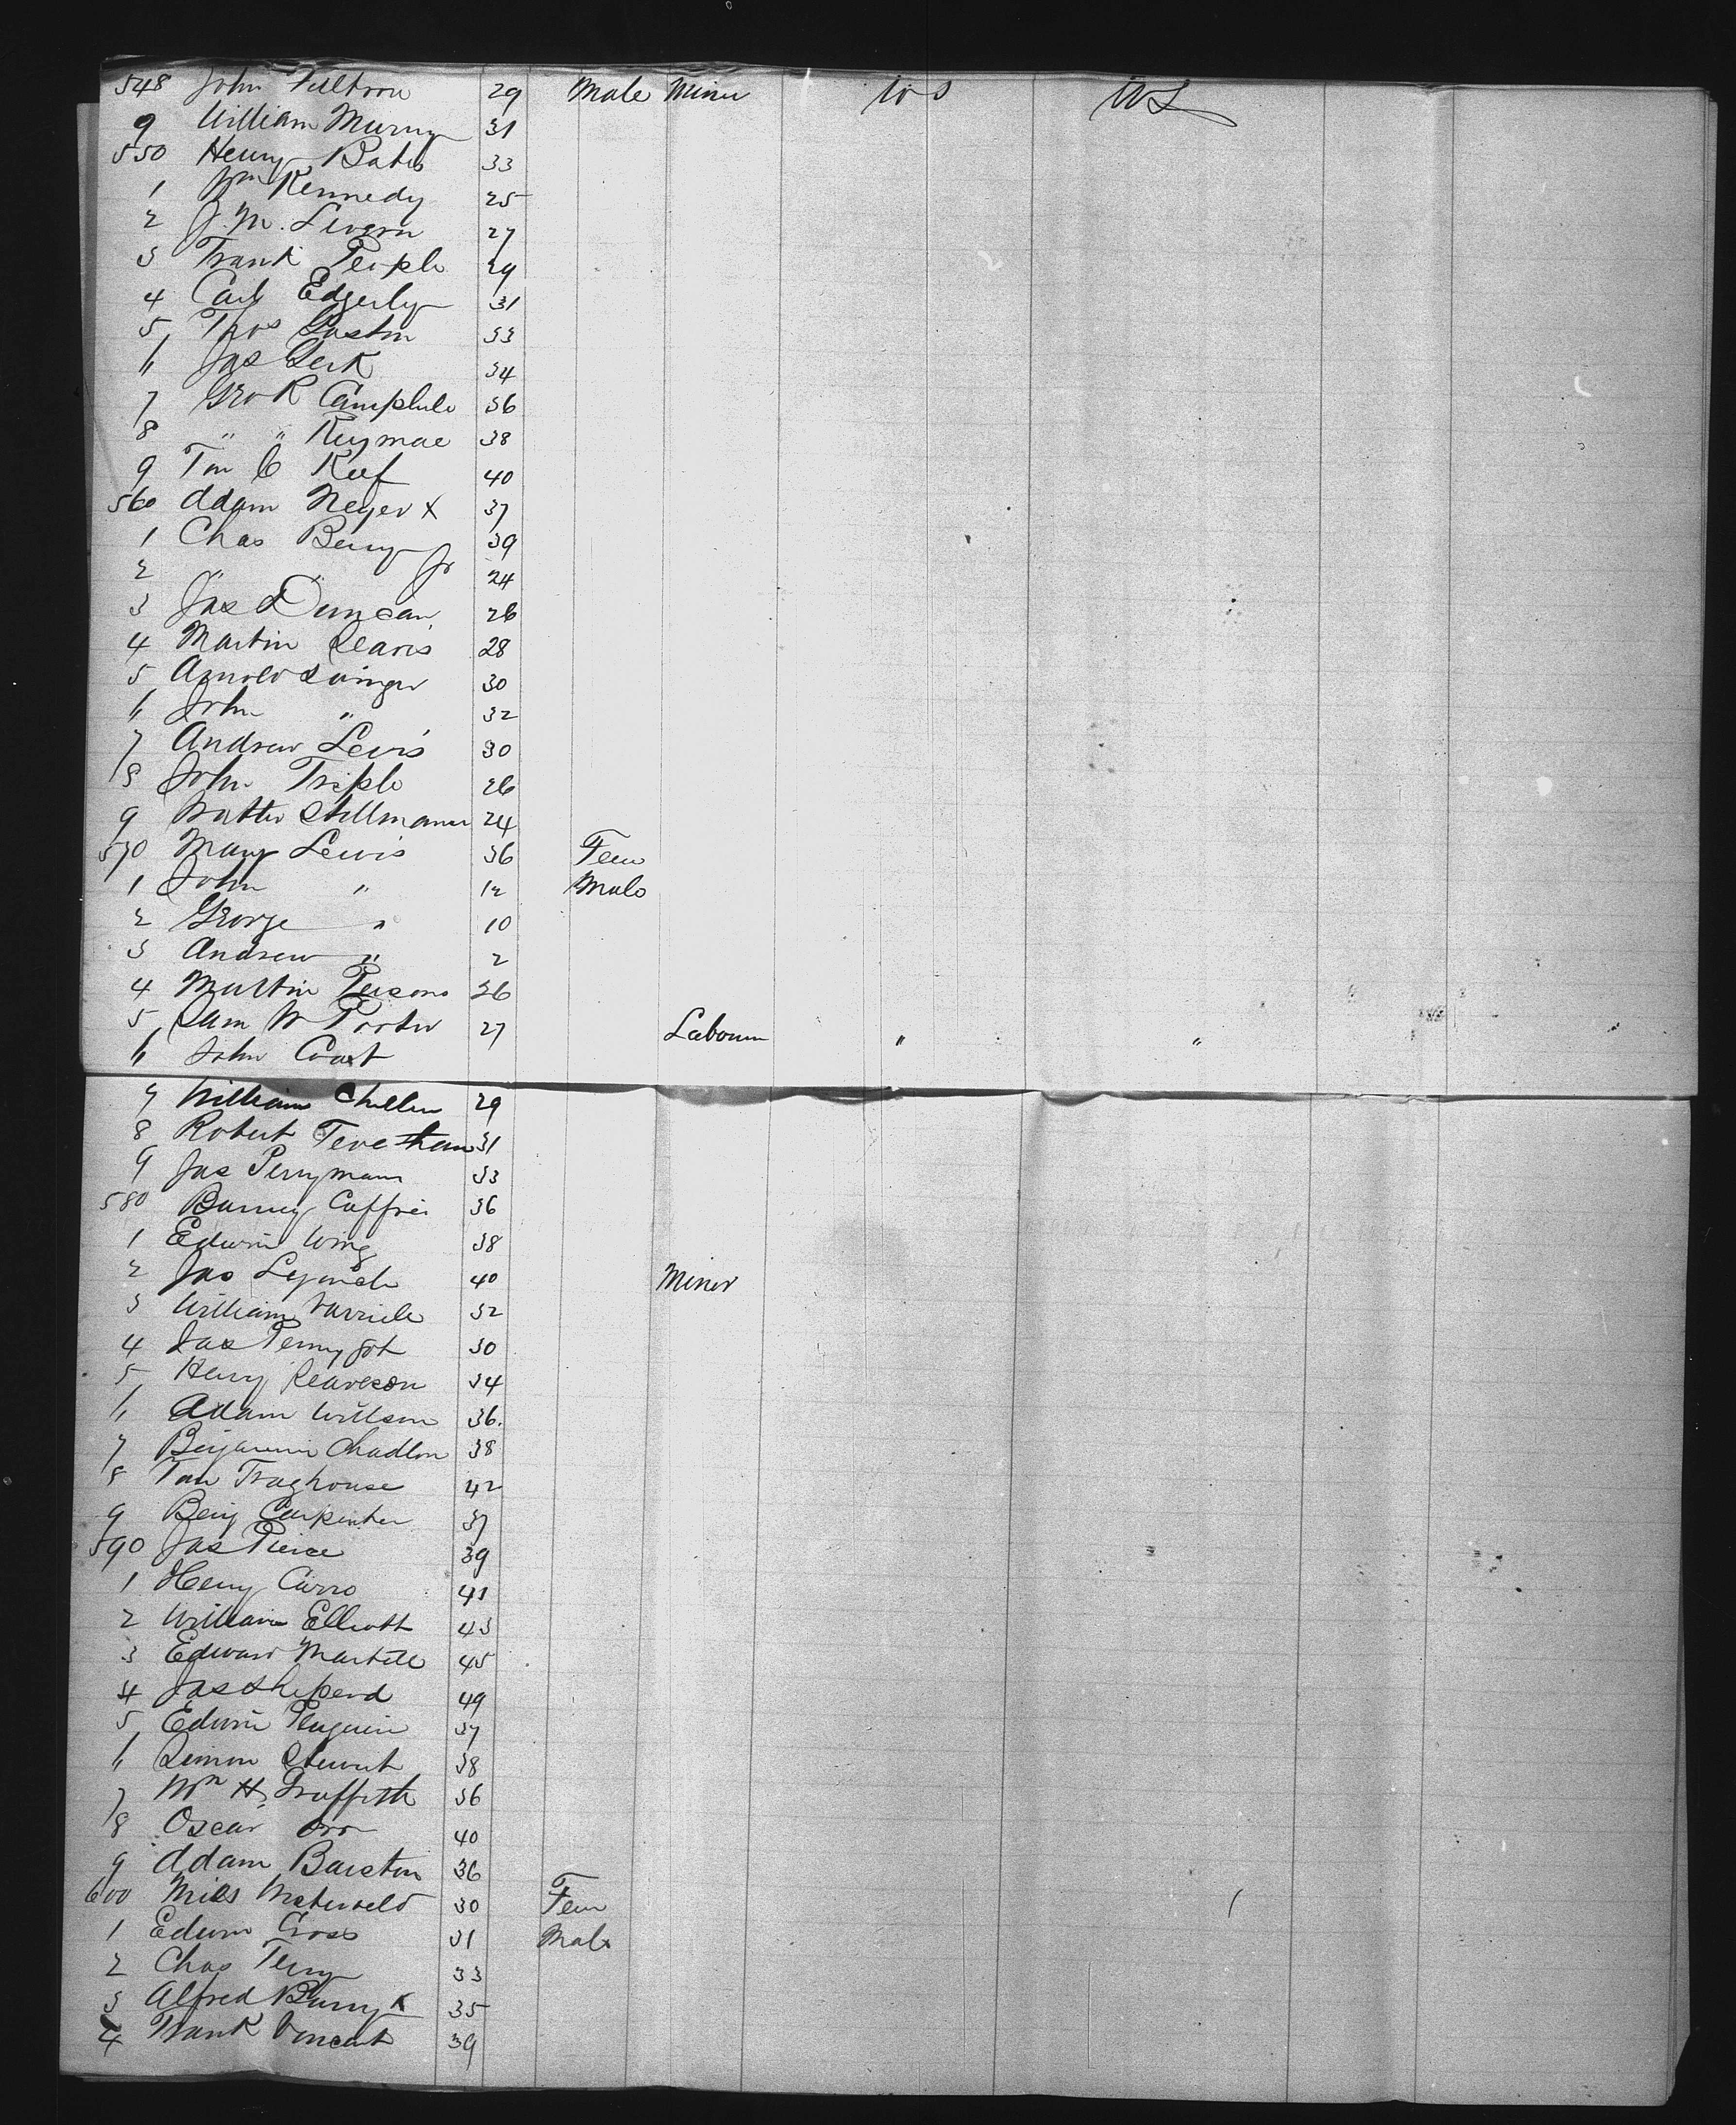 548 John Fulton 29 Male Miner U S U S
9 William Murry 31
550 Henry Bates 33
1 Jno Kennedy 25
2 J. M. Livern 27
3 Frank People 29
4 Carl Edgerly 31
5 Thos Gaston 33
6 Jas 34
7 Geo R Campbele 36
8 " " 38
9 Tom C Keef 40
560 Adam Neyer x 37
1 Chas Berry 39
2 " " Jr 24
3 Jas Duncan 26
4 Martin Searis 28
5 Arnold 30
6 John " 32
7 Andrew Lewis 30
8 John Triple 26
9 Walter Stillman 24
570 Mary Lewis 36 Fem
1 John " 12 Male
2 George " 10
3 Andrew " 2
4 Martin Persons 26
5 Sam W Porter 27 Labourer " "
6 John Coast
7 William 29
8 Robert 31
9 Jas Perryman 33
580 Barney Caffrei 36
1 Edwin Wing 38
2 Jas 40 Miner
3 William 32
4 Jas 30
5 Henry Reaveson 34
6 Adam Willson 36.
7 Benjamin Chadlon 38
8 Tom Traghouse 42
9 Benj Carpenter 37
590 Jas Pierce 39
1 Henry Curro 41
2 William Elliott 43
3 Edward Martell 45
4 Jas Sheperd 49
5 Edwin Penguin 37
6 Simon Stewart 38
7 Wm H Graffith 36
8 Oscar Orr 40
9 Adam Barston 36
600 Miss 30 Fem
1 Edwin Cross 31 Male
2 Chas Terry 33
3 Alfred Burry 35
4 Frank Vincent 39